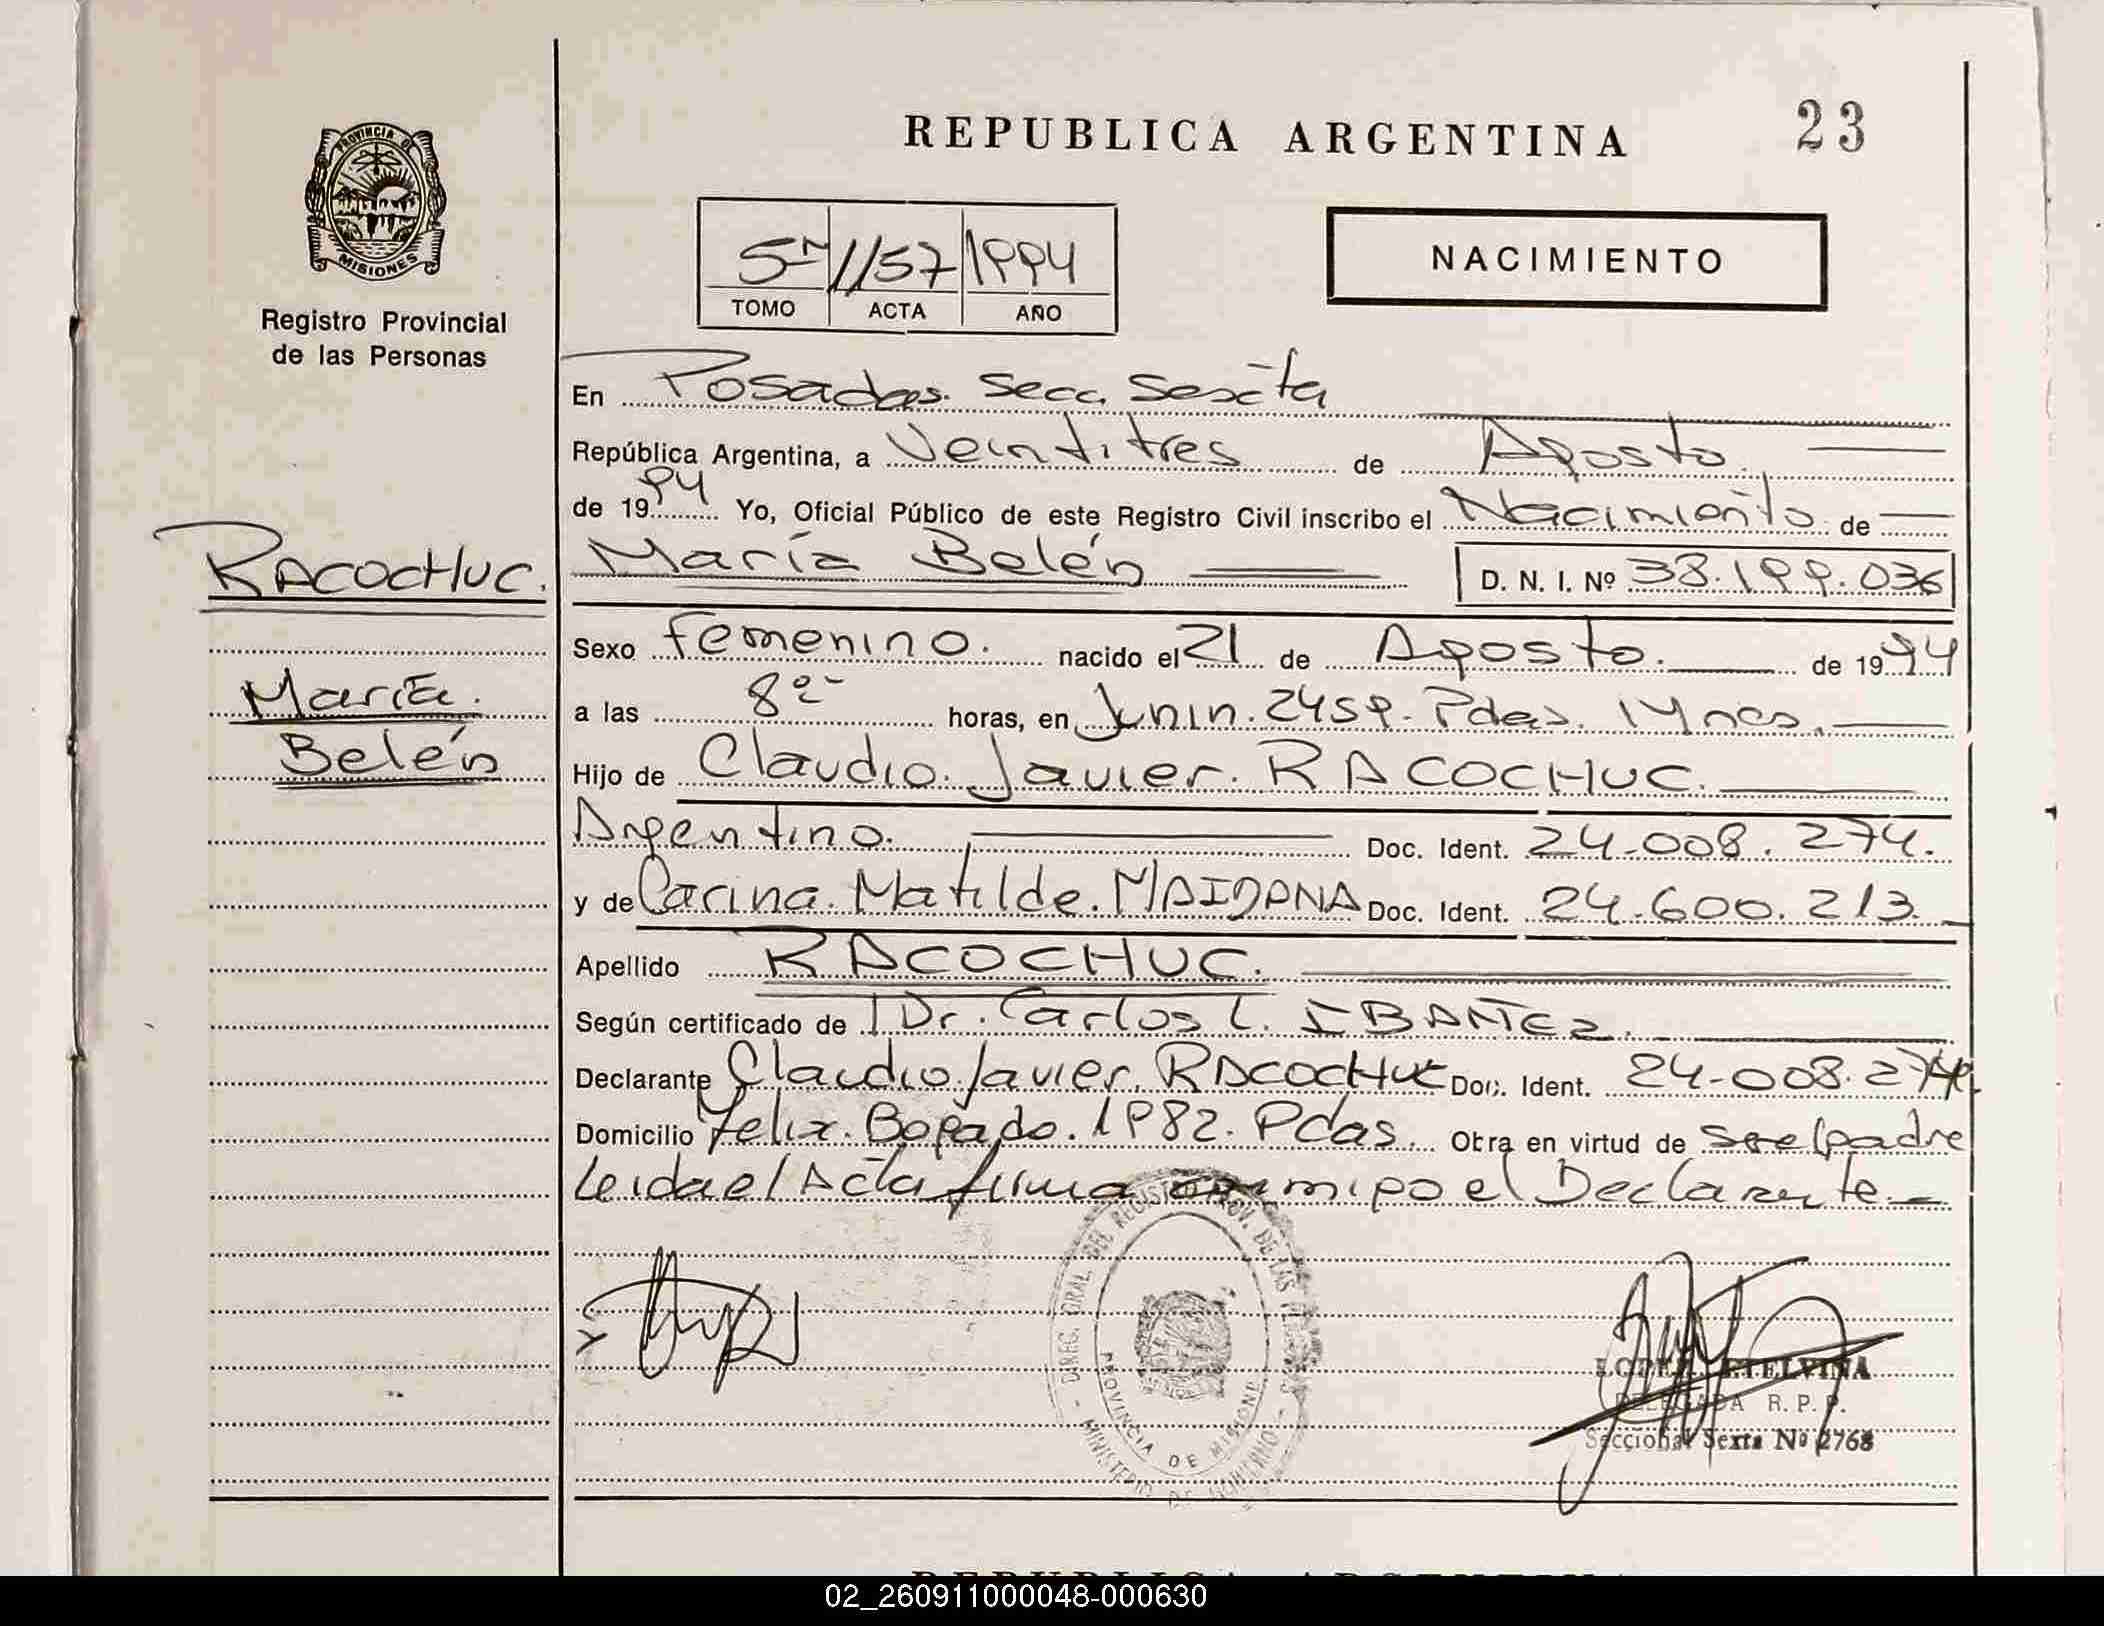 REPUBLICA ARGENTINA
23
PROVINCIA DE
MISIONES
Registro Provincial
de las Personas
1157 1994
TOMO ACTA AÑO
NACIMIENTO
En Posadas. Secc. Sexta
República Argentina, a Veintitres de Agosto.
de 1994 Yo, Oficial Público de este Registro Civil inscribo el Nacimiento de
RACOCHUC.
María
Belén
María Belén D. N. I. Nº 38.199.036
Sexo femenino. nacido el 21 de Agosto. de 1994
a las 8 horas, en Junin. 2459. Pdas. Mnes.
Hijo de Claudio. Javier. RACOCHUC.
Argentino. Doc. Ident. 24.008.274.
y de Carina. Matilde. MAIDANA Doc. Ident. 24.600.213.
Apellido RACOCHUC.
Según certificado de Dr. Carlos L. IBAÑEZ.
Declarante Claudio Javier. RACOCHUC Doc. Ident. 24.008.274
Domicilio felix. Bogado. 1982. Pdas. Obra en virtud de ser el padre
Leida el Acta firma conmigo el Declarante.
DIREC. GRAL. DEL REGISTRO PROV. DE LAS
PROVINCIA DE MISIONES
LOPEZ ETELVINA
DELEGADA R. P. P.
Seccional Sexta Nº 2768
02_260911000048-000630